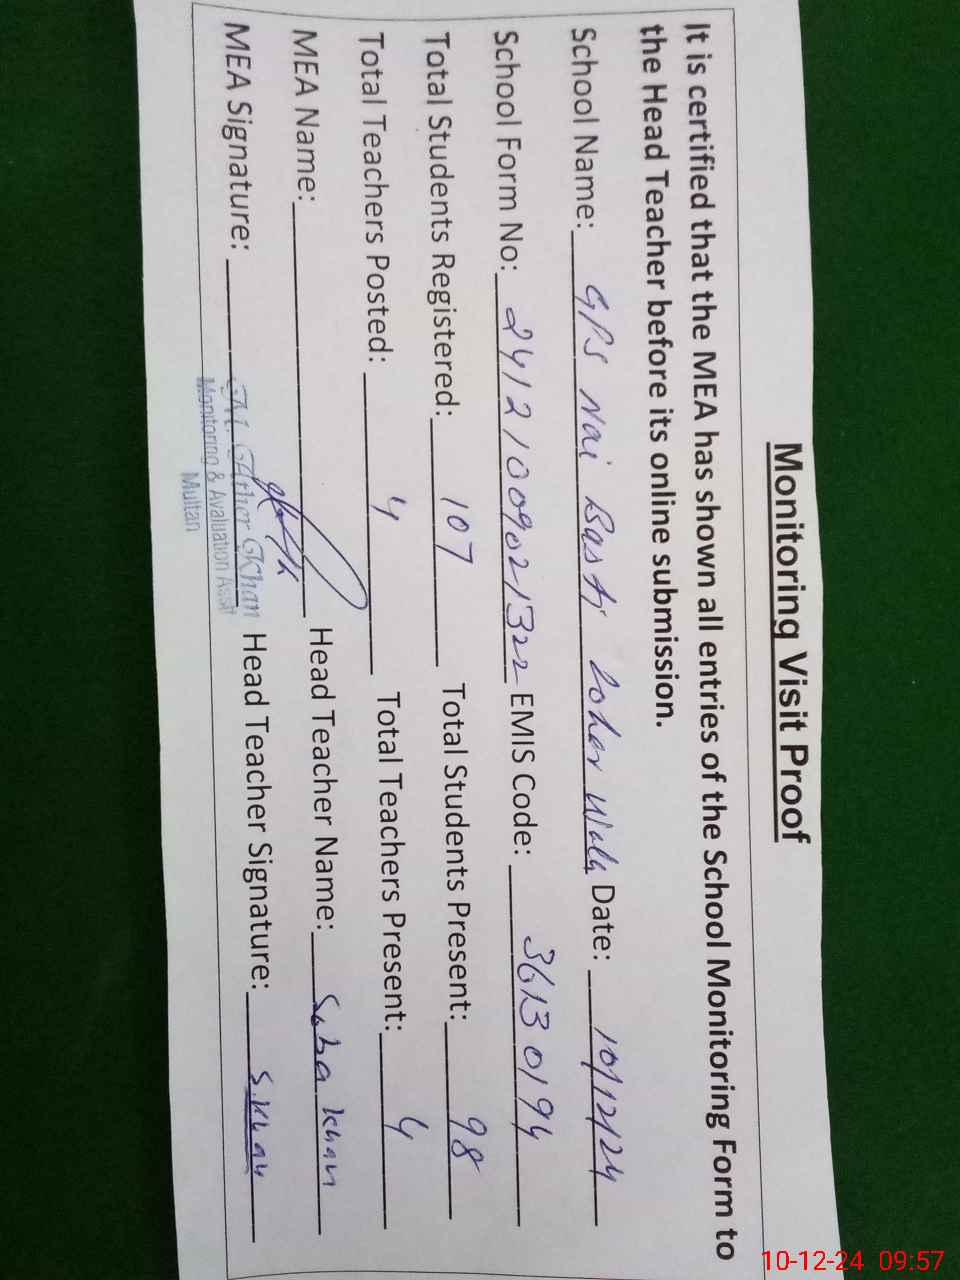 Monitoring Visit Proof
It is certified that the MEA has shown all entries of the School Monitoring Form to
the Head Teacher before its online submission.
School Name: GPS Nai Basti Lohar Wala Date: 10/12/24
School Form No: 24121009021322 EMIS Code: 36130194
Total Students Registered: 107 Total Students Present: 98
Total Teachers Posted: 4 Total Teachers Present: 4
MEA Name: Head Teacher Name: Saba Khan
MEA Signature: M. Ather Khan Head Teacher Signature: S.Khan
Monitoring & Avaluation Assit
Multan
10-12-24 09:57